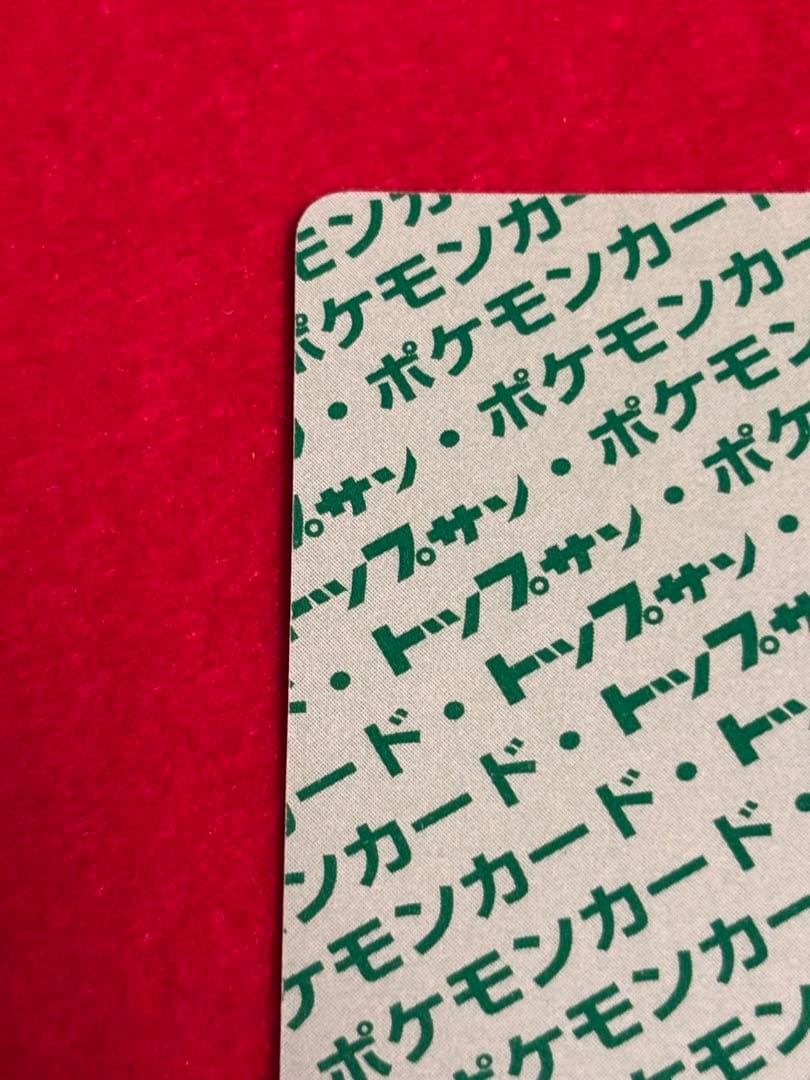 モンカ
ポケモンカー
ン・ポケモンカード
プサン・ポケモンカー
トップサン・ポケモン
ド・トップサン・ポケ
カード・トップサン・
ンカード・トップサ
ケモンカード・トッ
ポケモンカード・
ポケモンカー
ケモン